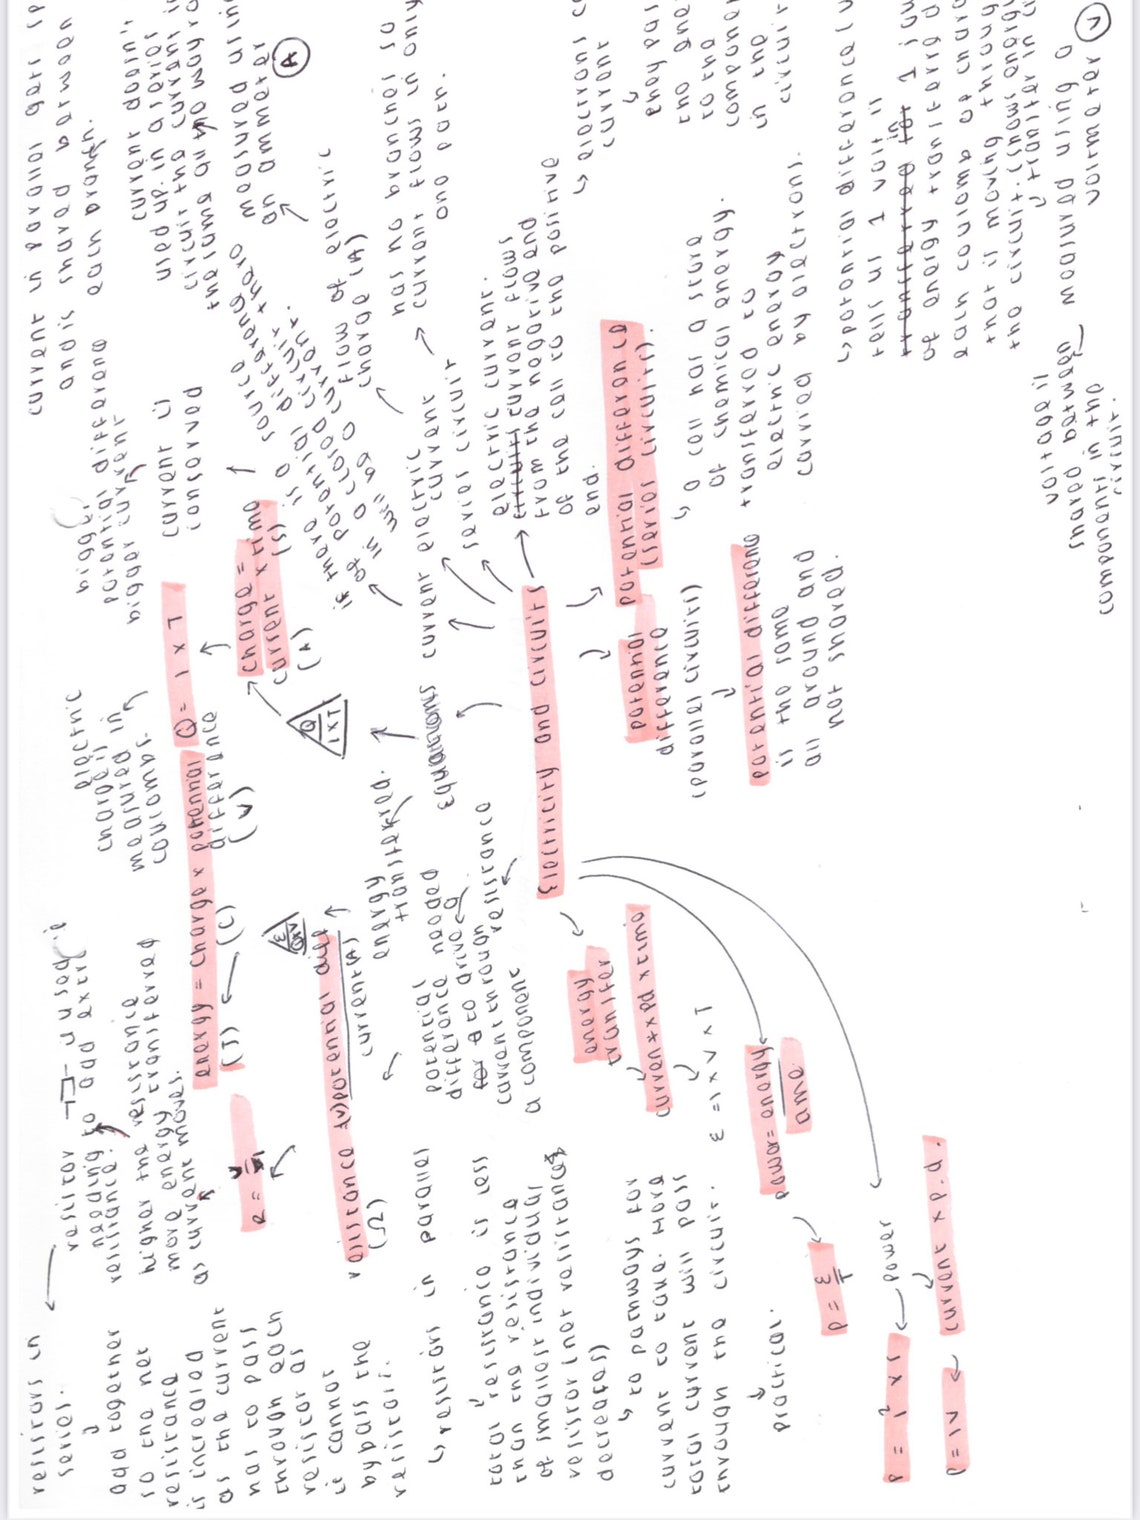 current in parallel gets
and is shared between
each branch.
current doesn't
used up. in a series
circuit the current i
the same all the way ro
measured using
an ammeter
A
bigger
potential difference
bigger current
current is
conserved
source
there is a
potential difference
if
in a closed circuit.
will be a current.
flow of electric
charge (A)
has no branches so
current flows in only
one path.
electric
current
series circuit
current
electric current.
circuits current flows
from the negative end
of the cell to the positive
end.
electrons c
current
in
they pas
the ene
to the
componen
in the
circuit
potential difference
(series circuits).
a cell has a store
of chemical energy.
transfered to
electric energy
carried by electrons.
potential difference (v
tells us 1 volt is
transferred for 1 jou
of energy transfered
each coulomb of char
that is moving throug
the circuit. (shows energ
transfer in c
measured using a
voltmeter
V
voltage is
shared between
components in the
circuit.
potential
difference
(parallel circuits)
potential difference
is the same
all around and
not shared.
Q = I x T
charge =
current x time
(A)
(s)
Q
I x T
electric
charge is
measured in
coulombs.
energy = charge x potential
difference
(J)
(C)
(V)
E
QxV
energy
transfered.
equations
Electricity and circuits
resistor
used
to add extra
resistance.
higher the resistance
more energy transfered
as current moves.
R = V
I
resistance (v)potential diff
(Ω)
current(A)
potential
difference needed
for to drive a
current through
a component
resistance
energy
transfer
current x pd x time
E = I x V x T
power = energy
time
P = E
T
power
P = I² x
current x p.d.
P = IV
resistors in
series.
add together
so the net
resistance
is increased
as the current
has to pass
through each
resistor as
it cannot
bypass the
resistor.
resistors in parallel
total resistance is less
than the resistance
of smallest individual
resistor (net resistance
decreases)
to pathways for
current to take. More
total current will pass
through the circuit.
practical.